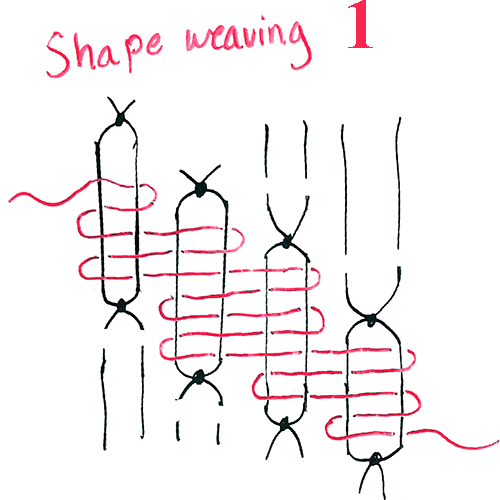 Shape weaving 1